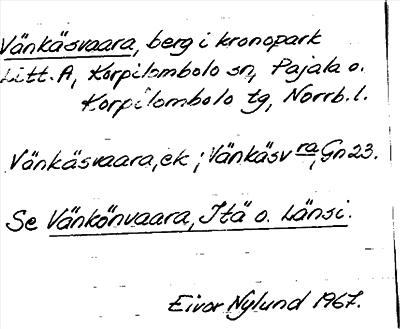 Vänkäsvaara, berg i kronopark
Litt. A, Korpilombolo sn, Pajala o.
Korpilombolo tg, Norrb. l.
Vänkäsvaara, ek ; Vänkäsv ra, Gn 23.
Se Vänkönvaara, Itä o. Länsi.
Eivor Nylund 1967.